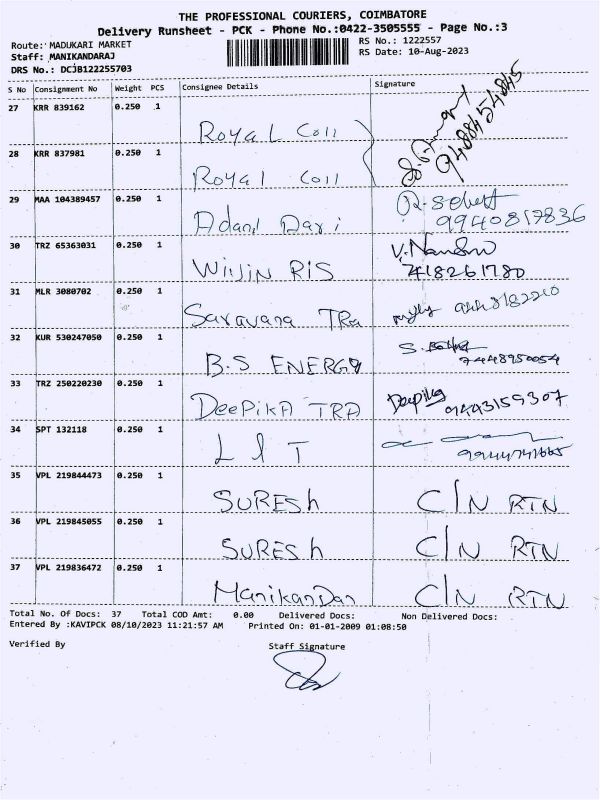 THE PROFESSIONAL COURIERS, COIMBATORE
Delivery Runsheet - PCK - Phone No.:0422-3505555 - Page No.:3
Route: MADUKARI MARKET
RS No.: 1222557
Staff: MANIKANDARAJ
RS Date: 10-Aug-2023
DRS No.: DCJB122255703
S No Consignment No Weight PCS Consignee Details Signature
27 KRR 839162 0.250 1
Royal Coll
9488454845
28 KRR 837981 0.250 1
Royal Coll
29 MAA 104389457 0.250 1
Adani Dari
R. Sebest
9940817836
30 TRZ 65363031 0.250 1
Winjin RIS
V. Nandhu
7418261780
31 MLR 3080702 0.250 1
Saravana TRa
32 KUR 530247050 0.250 1
B.S ENERGY
S.
7448950054
33 TRZ 250220230 0.250 1
DeePiKA TRA
Deepika
9443159307
34 SPT 132118 0.250 1
L & T
9944741665
35 VPL 219844473 0.250 1
SURESh C/N RTN
36 VPL 219845055 0.250 1
SURESh C/N RTN
37 VPL 219836472 0.250 1
ManikanDan C/N RTN
Total No. Of Docs: 37 Total COD Amt: 0.00 Delivered Docs: Non Delivered Docs:
Entered By :KAVIPCK 08/10/2023 11:21:57 AM Printed On: 01-01-2009 01:08:50
Verified By Staff Signature